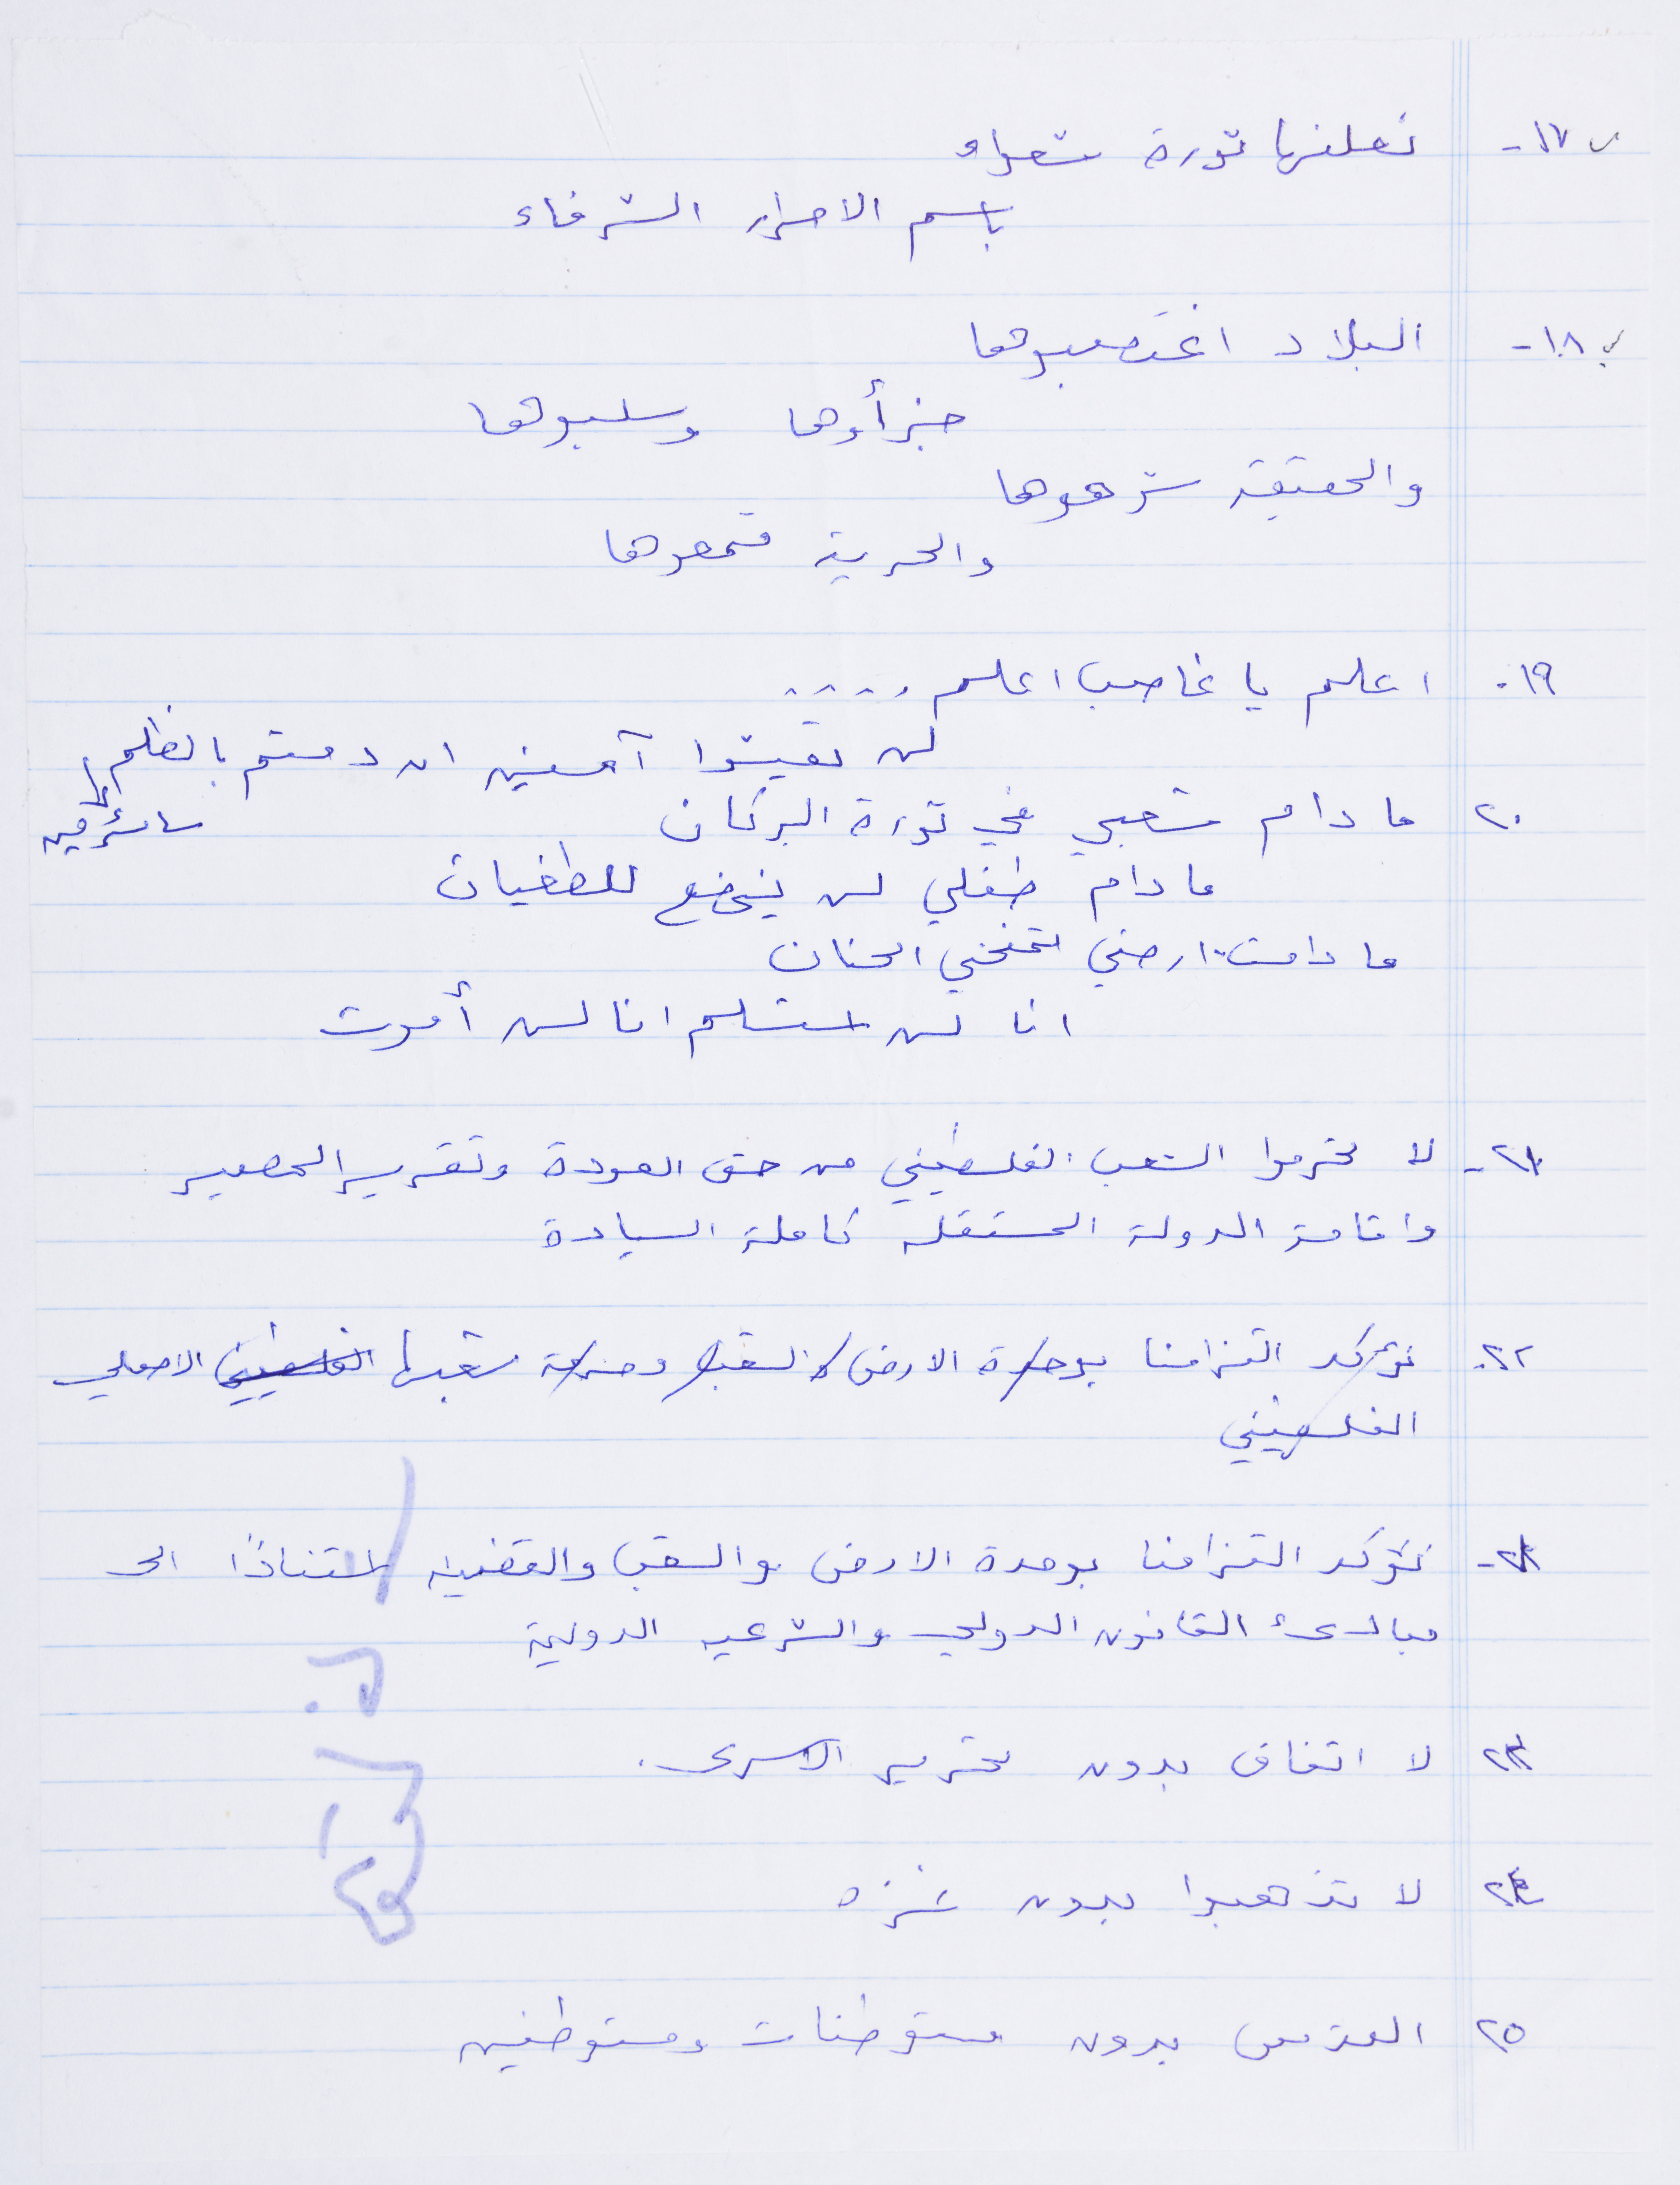 ١٧- نعلنها ثورة شعواء
باسم الاحرار الشرفاء
١٨- البلاد اغتصبوها
جزأوها وسلبوها
والحقيقة شوهوها
والحرية قمعوها
١٩- اعلم يا غاصب اعلم ....
لن تعيشوا آمنين ان دمتم بالظلم
سائرين
٢٠ ما دام شعبي في ثورة البركان
ما دام طفلي لن يخضع للطغيان
ما دامت ارضي تمنحني الحنان
انا لن استسلم انا لن أموت
٢١- لا تحرموا الشعب الفلسطيني من حق العودة وتقرير المصير
واقامة الدولة المستقله كاملة السيادة
٢٢- نؤكد التزامنا بوحدة الارض والشعب وحرية شعبها الفلسطيني الاصلي
الفلسطيني
٢٢- نؤكد التزامنا بوحدة الارض والشعب والقضيه استنادًا الى
مبادئ القانون الدولي والشرعيه الدولية
٢٣ لا اتفاق بدون تحرير الاسرى.
٢٤ لا تذهبوا بدون غزه
٢٥ القدس بدون مستوطنات ومستوطنين